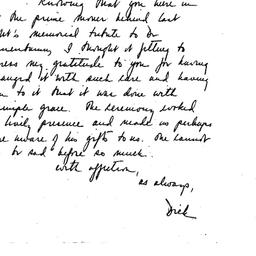 Knowing that you were in
the prime mover behind last
memorial tribute to Dr
I thought it fitting to
ress my gratitude to you for having
anged it with such care and having
to it that it was done with
simple grace. The ceremony evoked
lively presence and made us perhaps
re aware of his gifts to us. One cannot
be sad before so much.
with affection,
as always,
Dick